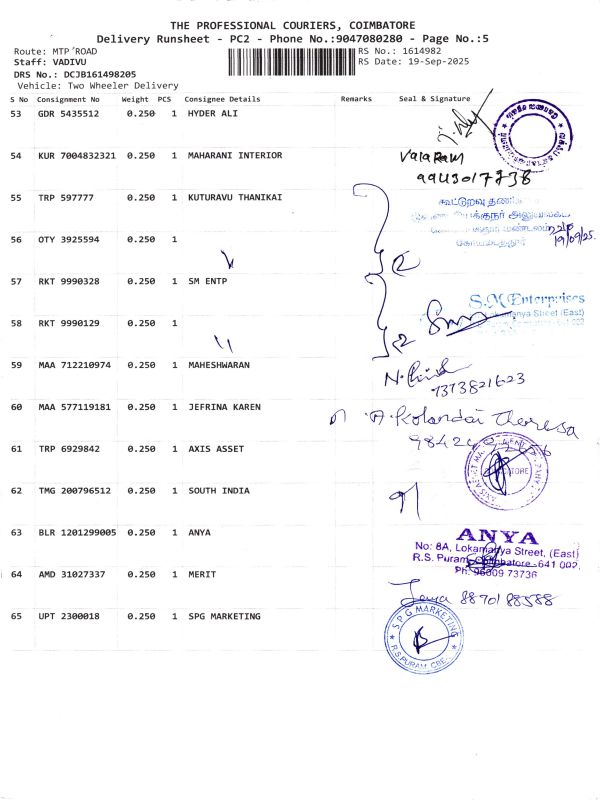 THE PROFESSIONAL COURIERS, COIMBATORE
Delivery Runsheet - PC2 - Phone No.:9047080280 - Page No.:5
Route: MTP ROAD
RS No.: 1614982
Staff: VADIVU
RS Date: 19-Sep-2025
DRS No.: DCJB161498205
Vehicle: Two Wheeler Delivery
S No Consignment No Weight PCS Consignee Details Remarks Seal & Signature
53 GDR 5435512 0.250 1 HYDER ALI
54 KUR 7004832321 0.250 1 MAHARANI INTERIOR
Valaram
9943017738
55 TRP 597777 0.250 1 KUTURAVU THANIKAI
கூட்டுறவு
56 OTY 3925594 0.250 1
19/09/25.
2
57 RKT 9990328 0.250 1 SM ENTP
S.M Enterprises
Street (East)
58 RKT 9990129 0.250 1
2
59 MAA 712210974 0.250 1 MAHESHWARAN
7373821623
60 MAA 577119181 0.250 1 JEFRINA KAREN
A. Kolandai Theresa
61 TRP 6929842 0.250 1 AXIS ASSET
62 TMG 200796512 0.250 1 SOUTH INDIA
63 BLR 1201299005 0.250 1 ANYA
ANYA
No: 8A, Lokamanya Street, (East)
R.S. Puram, Coimbatore - 641 002.
Ph: 96009 73736
64 AMD 31027337 0.250 1 MERIT
8870188588
65 UPT 2300018 0.250 1 SPG MARKETING
SPG MARKETING
R.S.PURAM, CBE